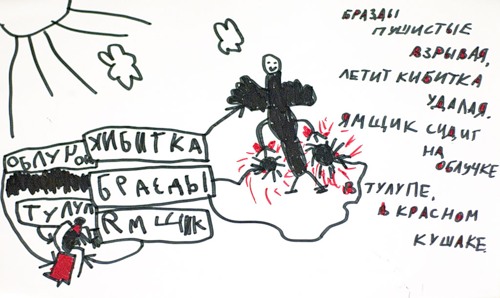 БРАЗДЫ
ПУШИСТЫЕ
ВЗРЫВАЯ,
ЛЕТИТ КИБИТКА
УДАЛАЯ.
ЯМЩИК СИДИТ
НА
ОБЛУЧКЕ
В ТУЛУПЕ,
В КРАСНОМ
КУШАКЕ.
КИБИТКА
БРАЗДЫ
ТУЛУП
ЯМЩИК